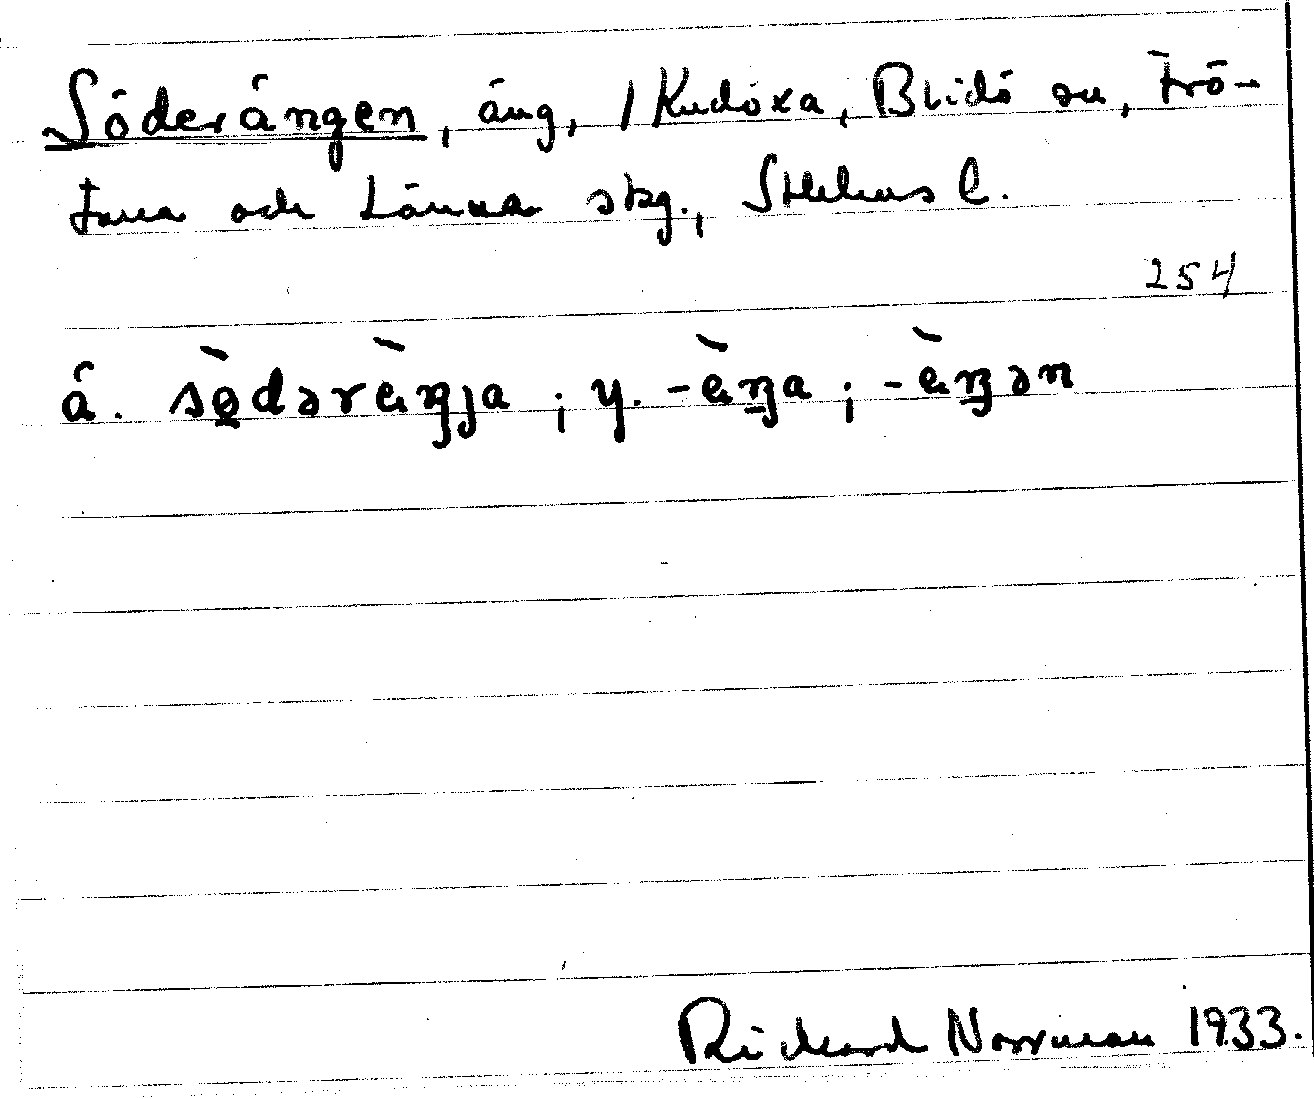 Söderängen, äng, 1 Kudoxa, Blidö sn, Frö-
tuna och Länna skg., Sthlms l.
254
ä. sὸ̱dərὲŋja ; y. -ὲŋa ; -ὲŋən
Rickard Norrman 1933.